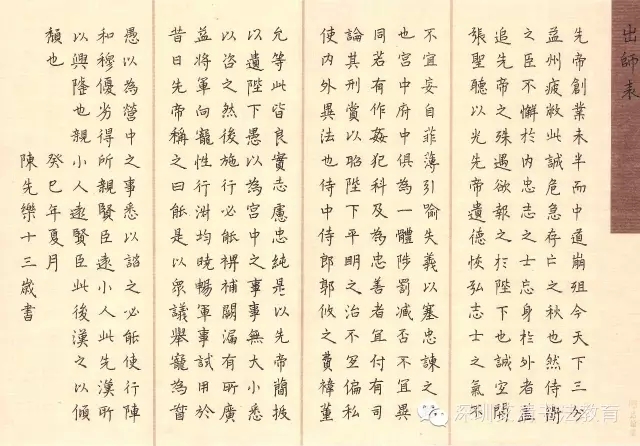 出師表
先帝創業未半而中道崩殂今天下三分
益州疲敝此誠危急存亡之秋也然侍衛
之臣不懈於內忠志之士忘身於外者
追先帝之殊遇欲報之於陛下也誠宜開
張聖聽以光先帝遺德恢弘志士之氣不
不宜妄自菲薄引喻失義以塞忠諫之
也宮中府中俱為一體陟罰臧否不宜異
同若有作姦犯科及為忠善者宜付有司
論其刑賞以昭陛下平明之治不宜偏私
使內外異法也侍中侍郎郭攸之費褘董
允等此皆良實志慮忠純是以先帝簡拔
以遺陛下愚以為宮中之事事無大小悉
以咨之然後施行必能裨補闕漏有所廣
益將軍向寵性行淑均曉暢軍事試用於
昔日先帝稱之曰能是以眾議舉寵為督
愚以為營中之事悉以諮之必能使行陣
和穆優劣得所親賢臣遠小人此先漢所
以興隆也親小人遠賢臣此後漢之以傾
頹也 癸巳年夏月
陳先樂十三歲書
深圳 书法教育